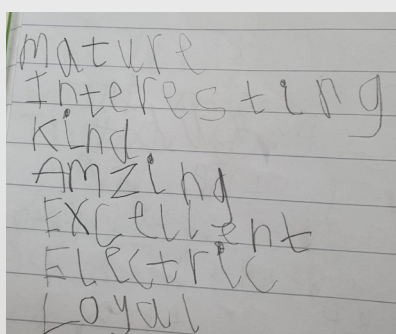 Mature
Interesting
Kind
AMZing
EXCellent
Electric
Loyal